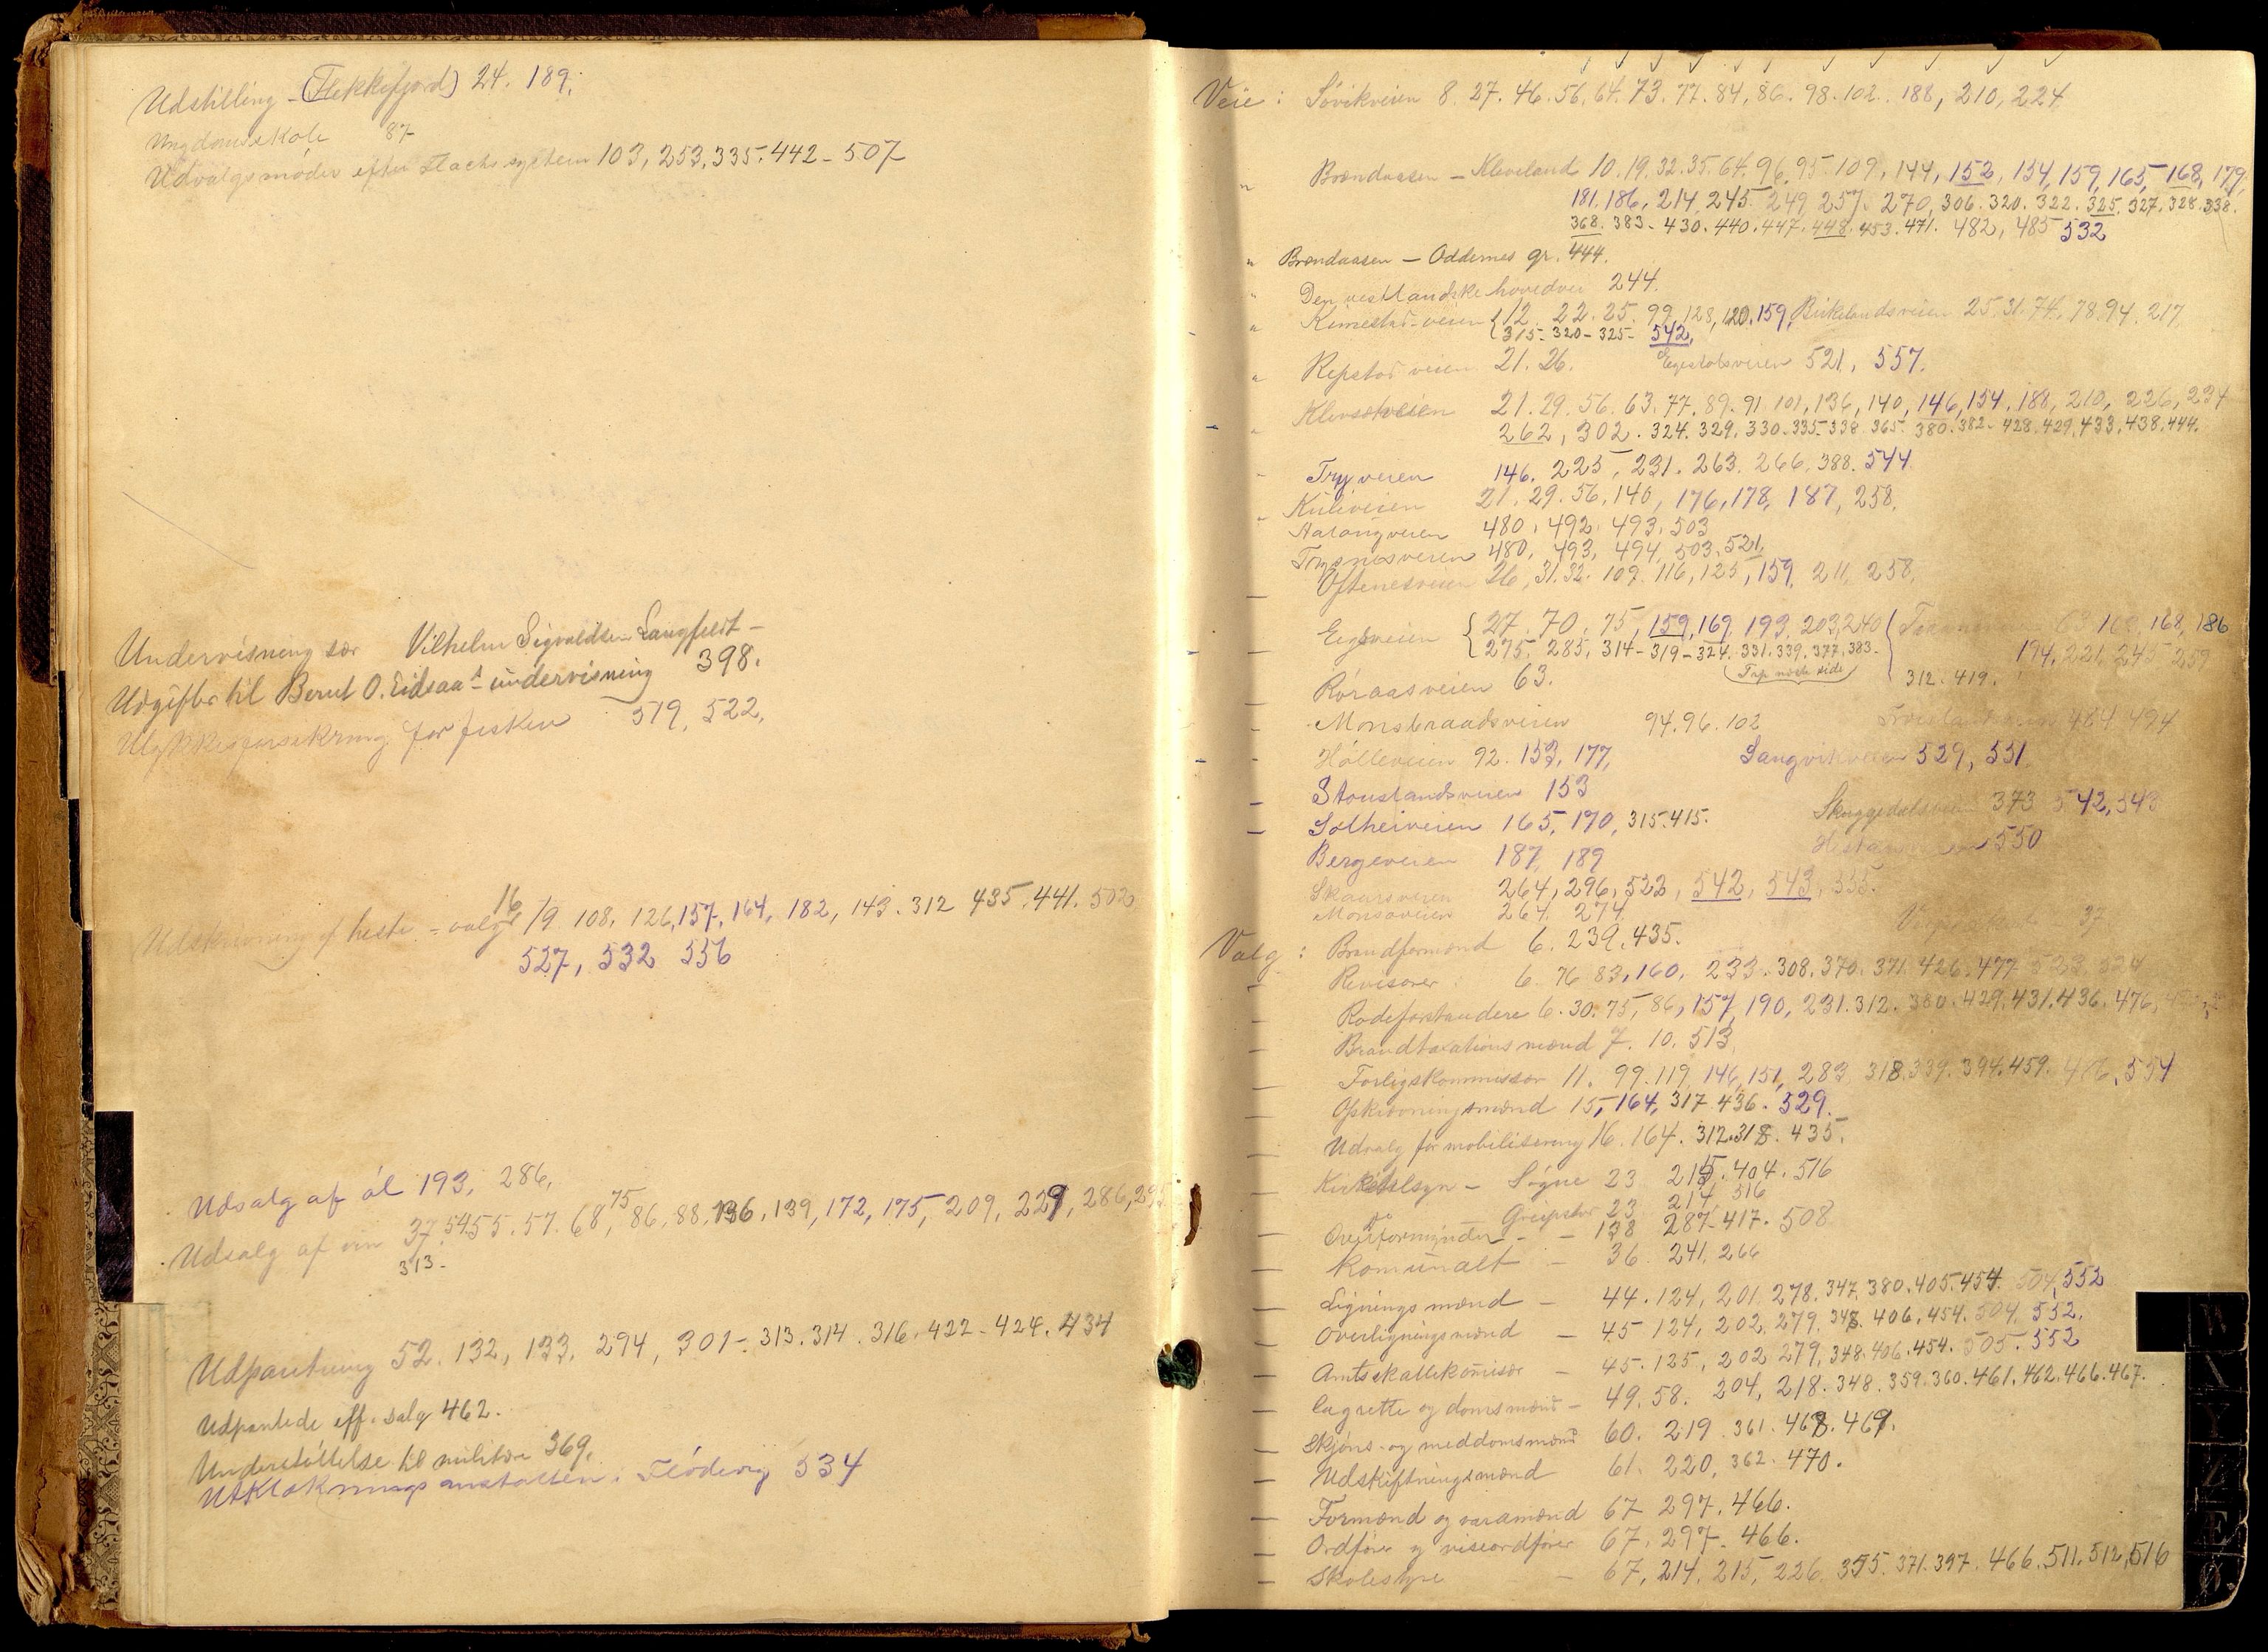 Udstilling - (Flekkefjord) 24. 189.
Ungdomsskole 87
Udvalgsmøder efter Flachs system 103, 253, 335. 442 - 507
Undervisning sær Vilhelm Sigvaldsen Langfeldt -
Udgifter til Berut O. Eidsaas undervisning 398.
Ulykkesforsikring for fiskere 519, 522,
Udskrivning af heste - valg 16/9 108, 126, 157, 164, 182, 143. 312 435. 441. 502
527, 532 556
Udsalg af øl 193, 286,
Udsalg af vin 37. 54 55. 57. 68, 75 86, 88, 136, 139, 172, 175, 209, 229, 286, 295
313.
Udpantning 52. 132, 133, 294, 301 - 313. 314. 316. 422 - 424. 434
Udpantede eff. salg 462.
Understøttelse til militære 369.
Utklækningsanstalten i Flødevig 534
Veie: Søvikveien 8. 27. 46. 56. 64. 73. 77. 84. 86. 98. 102. 188, 210, 224
" Brændaasen - Kleveland 10. 19. 32. 35. 64. 96. 95. 109, 144, 152, 154, 159, 165, 168, 179,
181. 186, 214, 245. 249 257. 270, 306. 320. 322. 325. 327. 328. 338.
368. 383. 430. 440. 447. 448. 453. 471. 482, 485 532
" Brændaasen - Oddernes gr. 444.
" Den vestlandske hovedvei 244.
" Kimestad-veien 12. 22. 25. 99, 128, 120. 159, Birkelandsveien 25. 31. 74. 78. 94. 217
315 - 320 - 325 - 542,
" Repstad veien 21. 26. Egestølsveien 521, 557.
" Klevsetveien 21. 29. 56. 63. 77. 89. 91 101, 136, 140, 146, 154. 188, 210, 226, 234
262, 302. 324. 329. 330. 335. 338. 365. 380. 382 - 428. 429. 433. 438. 444.
- Try veien 146. 225, 231. 263. 266. 388. 544
" Kuliveien 21. 29. 56. 140, 176, 178, 187, 258,
Aarangveien 480, 492, 493, 503
Trysnesveien 480, 493, 494, 503, 521,
- Oftenesveien 26, 31. 32. 109. 116, 125, 159, 211, 258,
- Eigsveien 27. 70. 75, 159, 169, 193, 203, 240 168, 186
275. 285, 314 - 319 - 324. 331. 339. 377. 383 - 194, 221, 245 259
- Røraasveien 63. 312. 419.
- Monsbraadsveien 94. 96. 102 484 494
- Hølleveien 92. 153, 177, Langvikveien 529, 551
- Stouslandsveien 153
- Solheiveien 165, 170, 315. 415. Skuggedalsveien 373 542, 543
Bergeveien 187, 189 550
Skaarsveien 264, 296, 522, 542, 543, 555.
Monsøveien 264. 274. 37
Valg: Brandformænd 6. 239. 435.
- Revisorer: 6. 76 83, 160, 233. 308. 370. 371. 426. 477 523 524
- Rodeforstandere 6. 30. 75, 86, 157, 190, 231. 312. 380. 429. 431. 436. 476,
- Brandtaxationsmænd 7. 10. 513
- Forligskommissær 11. 99. 119, 146, 151, 283 318. 339. 394. 459. 476, 554
- Opskrivningsmænd 15, 164, 317. 436. 529.
- Udvalg for mobilisering 16. 164. 312. 318. 435.
- Kirketilsyn - Søgne 23 215. 404. 516
- do Greipstad 23 214 516
- Overformynder - - 138 287 - 417. 508
- Komunalt - 36. 241, 266
- Ligningsmænd - 44. 124, 201. 278. 347. 380. 405. 454. 504, 552
- Overligningsmænd - 45 124, 202, 279, 348. 406. 454. 504, 552.
- Amtsskattekomisær - 45. 125, 202 279, 348. 406. 454. 505. 552
- Lagrette og domsmænd - 49. 58. 204, 218. 348. 359. 360. 461. 462. 466. 467.
- Skjøns- og meddomsmænd 60. 219. 361. 468. 469.
- Udskiftningsmænd 61. 220, 362. 470.
- Formænd og varamænd 67 297. 466.
- Ordfører og viseordfører 67. 297. 466.
- Skolestyre - 67, 214, 215, 226 355. 371. 397. 466. 511. 512, 516
W
X
Y
Z
Æ
Ø